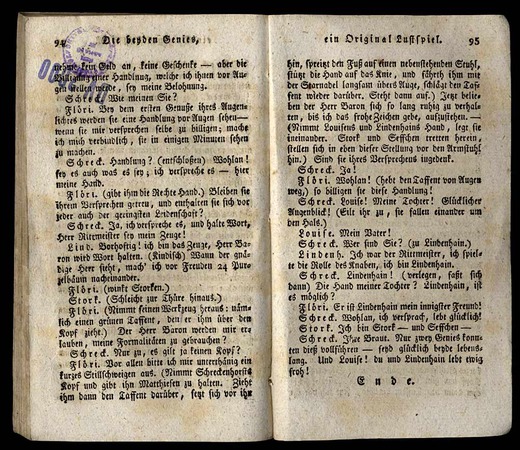 94 Die beyden Genies,
nehme kein Geld an, keine Geschenke — aber die
Billigung einer Handlung, welche ich ihnen vor Au-
gen stellen werde, sey meine Belohnung.
Schreck. Wie meinen Sie?
Flöri. Bey dem ersten Genuße ihres Augen-
lichtes werden sie eine Handlung vor Augen sehen—
wenn sie mir versprechen selbe zu billigen; mache
ich mich verbindlich, sie in einigen Minuten sehen
zu machen.
Schreck. Handlung? (entschloßen) Wohlan!
sey es auch was es sey; ich verspreche es — hier
meine Hand.
Flöri. (gibt ihm die Rechte Hand.) Bleiben sie
ihrem Versprechen getreu, und enthalten sie sich vor
jeder auch der geringsten Leidenschaft?
Schreck. Ja, ich verspreche es, und halte Wort,
Herr Rittmeister sey mein Zeuge!
Lind. Vorhoftig! ich bin das Zeuge, Herr Ba-
ron wird Wort halten. (Kindisch) Wann der gnä-
dige Herr sieht, mach' ich vor Freuden 24 Pur-
zelbäum nacheinander.
Flöri. (winkt Storken.)
Stork. (Schleicht zur Thüre hinaus.)
Flöri. (Nimmt seinen Werkzeug heraus: näm-
lich einen grünen Taffent, den er ihm über den
Kopf zieht.) Der Herr Baron werden mir er-
lauben, meine Formalitäten zu gebrauchen?
Schreck. Nur zu, es gilt ja keinen Kopf?
Flöri. Vor allen bitte ich mir unterthänig ein
kurzes Stillschweigen aus. (Nimmt Schreckenhorsts
Kopf und gibt ihn Matthiesen zu halten. Zieht
ihm dann den Taffent darüber, setzt sich vor ihn
ein Original Lustspiel. 95
hin, spreizt den Fuß auf einen nebenstehenden Stuhl,
stützt die Hand auf das Knie, und fährt ihm mit
der Starnadel langsam übers Auge, schlägt den Taf-
fent wieder darüber. Steht dann auf.) Jetzt belie-
ben der Herr Baron sich so lang ruhig zu verhal-
ten, bis ich das frohe Zeichen gebe, aufzustehen. —
(Nimmt Louisens und Lindenhains Hand, legt sie
ineinander. Stork und Seffchen tretten herein,
stellen sich in eben dieser Stellung vor den Armstuhl
hin.) Sind sie ihres Versprechens ingedenk.
Schreck. Ja!
Flöri. Wohlan! (hebt den Taffent von Augen
weg,) so billigen sie diese Handlung!
Schreck. Louise! Meine Tochter! Glücklicher
Augenblick! (Eilt ihr zu, sie fallen einander um
den Hals.)
Louise. Mein Vater!
Schreck. Wer sind Sie? (zu Lindenhain.)
Lindenh. Ich war der Rittmeister, ich spiel-
te die Rolle des Knaben, ich bin Lindenhain.
Schreck. Lindenhain! (verlegen, faßt sich
dann) Die Hand meiner Tochter? Lindenhain, ist
es möglich?
Flöri. Er ist Lindenhain mein innigster Freund!
Schreck. Wohlan, ich versprach, lebe glücklich!
Stork. Ich bin Stork — und Seffchen —
Schreck. Ihre Braut. Nur zwey Genies konn-
ten dieß vollführen — seyd glücklich beyde lebens-
lang. Und Louise! du und Lindenhain lebt ewig
froh!
Ende.